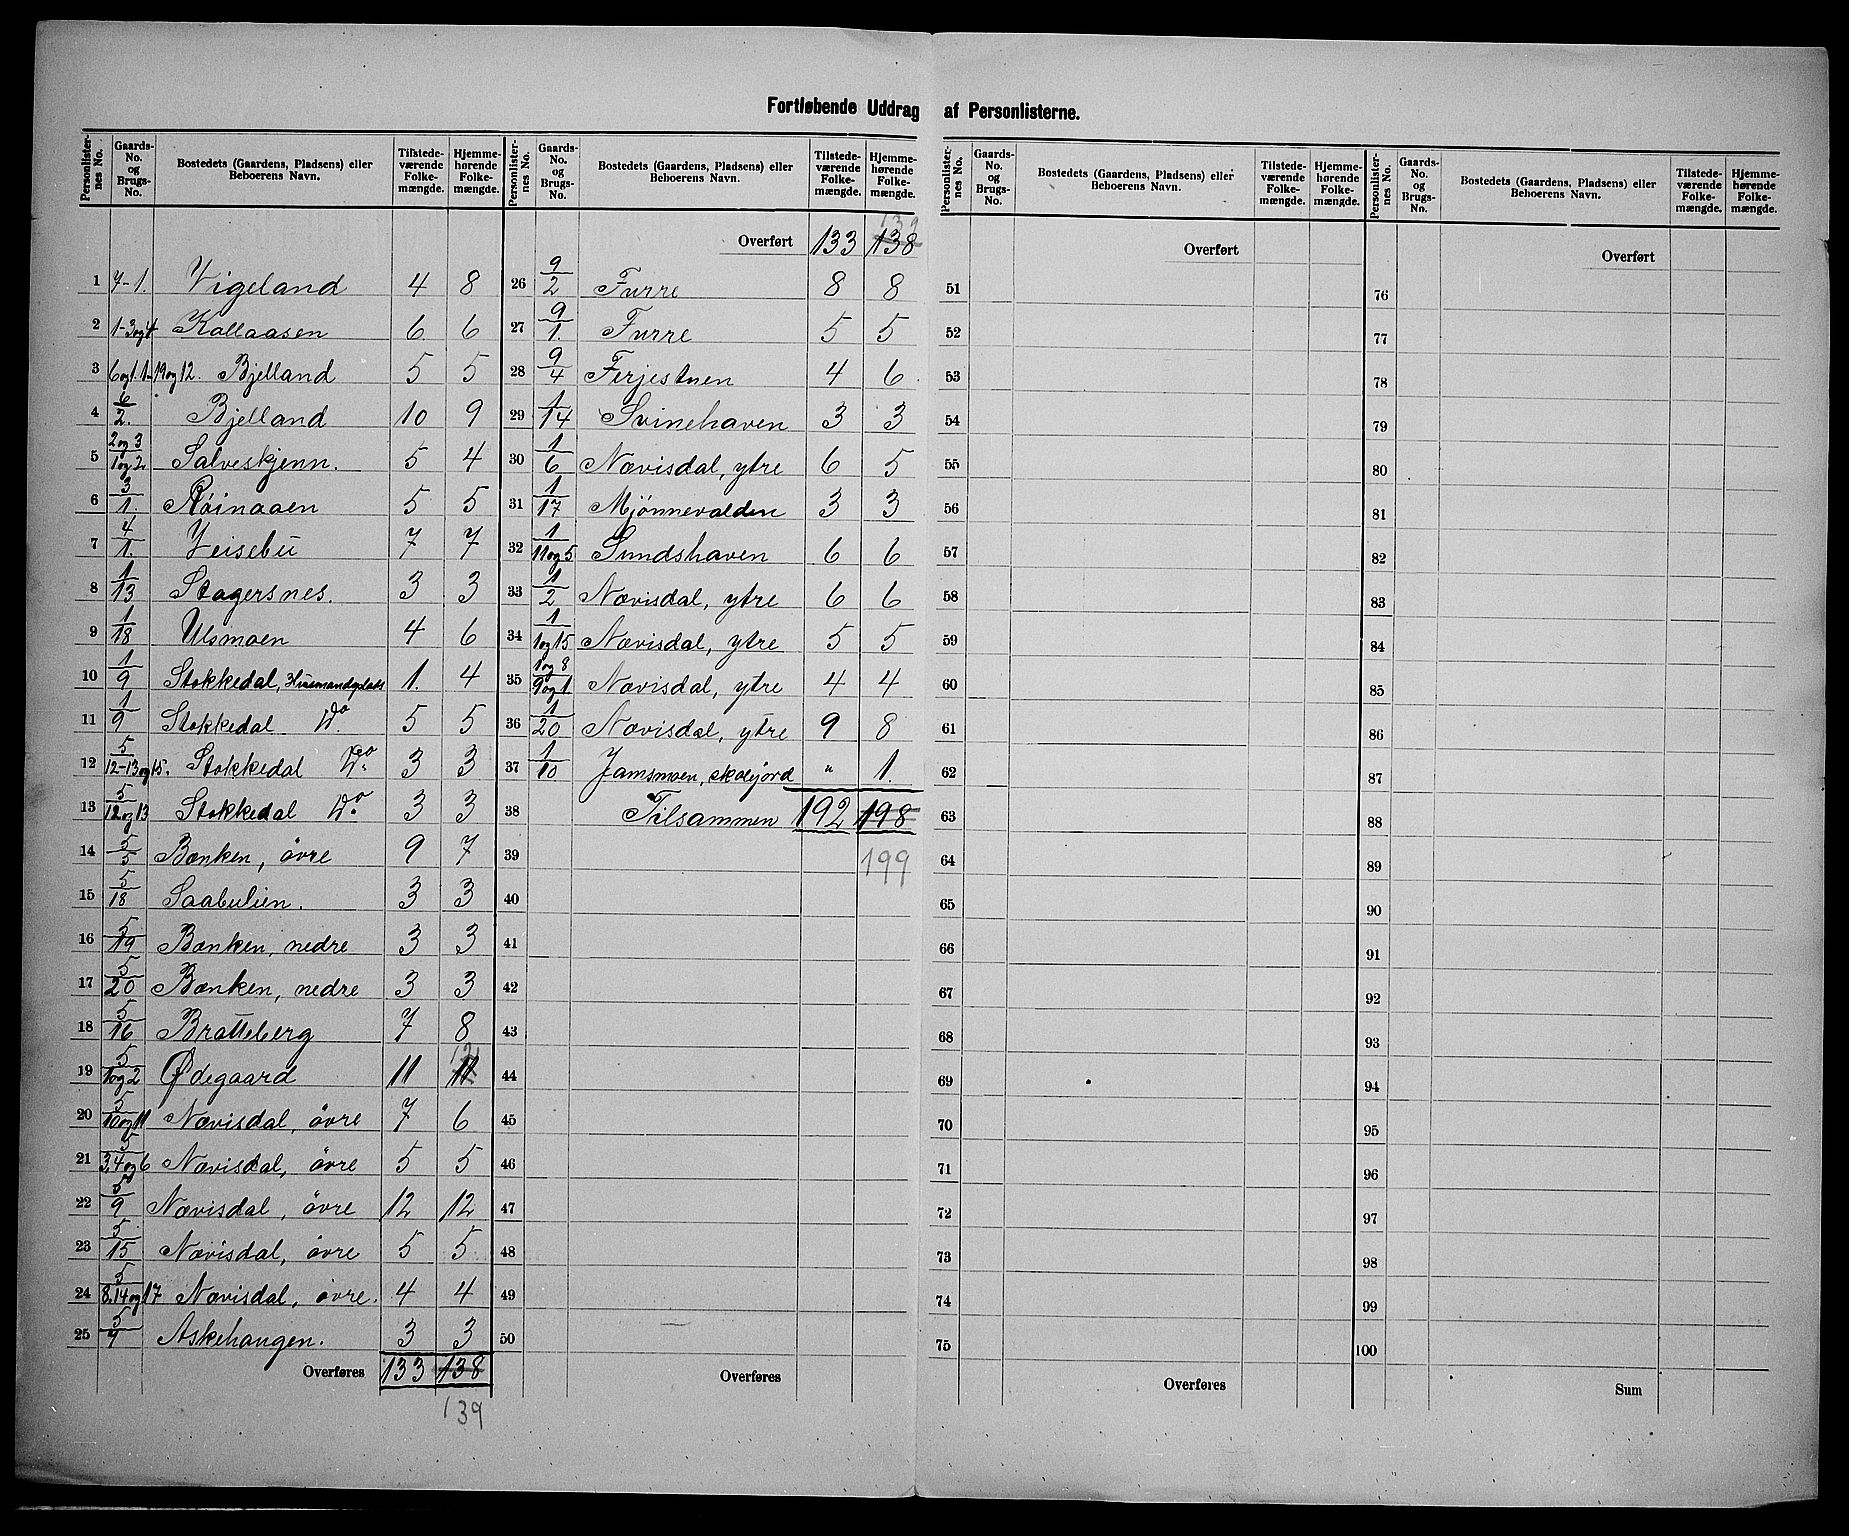 Fortløbende Uddrag af Personlisterne.
Personlisternes No. | Gaards-No. og Brugs-No. | Bostedets (Gaardens, Pladsens) eller Beboerens Navn. | Tilstedeværende Folkemængde. | Hjemmehørende Folkemængde.
1 | 7-1. | Vigeland | 4 | 8
2 | 1-3og4 | Kallaasen | 6 | 6
3 | 6og1. 1-19og12. | Bjelland | 5 | 5
4 | 6/2. | Bjelland | 10 | 9
5 | 2og3/1og2 | Salveskjenn. | 5 | 4
6 | 3/1. | Röinaaen | 5 | 5
7 | 4/1. | Veisebu | 7 | 7
8 | 1/13 | Stagersnes. | 3 | 3
9 | 1/18 | Ulsmoen | 4 | 6
10 | 1/9 | Stokkedal, Husmandsplads | 1. | 4
11 | 1/9 | Stokkedal Do | 5 | 5
12 | 5/12-13og15. | Stokkedal Do | 3 | 3
13 | 5/12og13 | Stokkedal Do | 3 | 3
14 | 5/5 | Bænken, övre | 9 | 7
15 | 5/18 | Saabulien. | 3 | 3
16 | 5/19 | Bænken, nedre | 3 | 3
17 | 5/20 | Bænken, nedre | 3 | 3
18 | 5/16 | Bratteberg | 7 | 8
19 | 5/1og2 | Ødegaard | 11 | 11 12
20 | 5/10og11 | Nævisdal, övre | 7 | 6
21 | 5/3,4og6 | Nævisdal, övre | 5 | 5
22 | 5/9 | Nævisdal, övre | 12 | 12
23 | 5/15 | Nævisdal, övre | 5 | 5
24 | 5/8.14og17 | Nævisdal, övre. | 4 | 4
25 | 5/7 | Askehaugen. | 3 | 3
Overføres | 133 | 138
139
Personlisternes No. | Gaards-No. og Brugs-No. | Bostedets (Gaardens, Pladsens) eller Beboerens Navn. | Tilstedeværende Folkemængde. | Hjemmehørende Folkemængde.
139
Overført | 133 | 138
26 | 9/2 | Furre | 8 | 8
27 | 9/1. | Furre | 5 | 5
28 | 9/4 | Ferjestuen | 4 | 6
29 | 1/14 | Svinehaven | 3 | 3
30 | 1/6 | Nævisdal, ytre | 6 | 5
31 | 1/17 | Mjönnevalden | 3 | 3
32 | 1/11og5 | Sundshaven | 6 | 6
33 | 1/2 | Nævisdal, ytre | 6 | 6
34 | 1/1og15 | Nævisdal, ytre | 5 | 5
35 | 1og8/9og1 | Nævisdal, ytre | 4 | 4
36 | 1/20 | Nævisdal, ytre | 9 | 8
37 | 1/10 | Jamsmoen, skolejord | " | 1.
38 | Tilsammen | 192 | 198
39 | 199
40
41
42
43
44
45
46
47
48
49
50
Overføres
Personlisternes No. | Gaards-No. og Brugs-No. | Bostedets (Gaardens, Pladsens) eller Beboerens Navn. | Tilstedeværende Folkemængde. | Hjemmehørende Folkemængde.
Overført
51
52
53
54
55
56
57
58
59
60
61
62
63
64
65
66
67
68
69
70
71
72
73
74
75
Overføres
Personlisternes No. | Gaards-No. og Brugs-No. | Bostedets (Gaardens, Pladsens) eller Beboerens Navn. | Tilstedeværende Folkemængde. | Hjemmehørende Folkemængde.
Overført
76
77
78
79
80
81
82
83
84
85
86
87
88
89
90
91
92
93
94
95
96
97
98
99
100
Sum